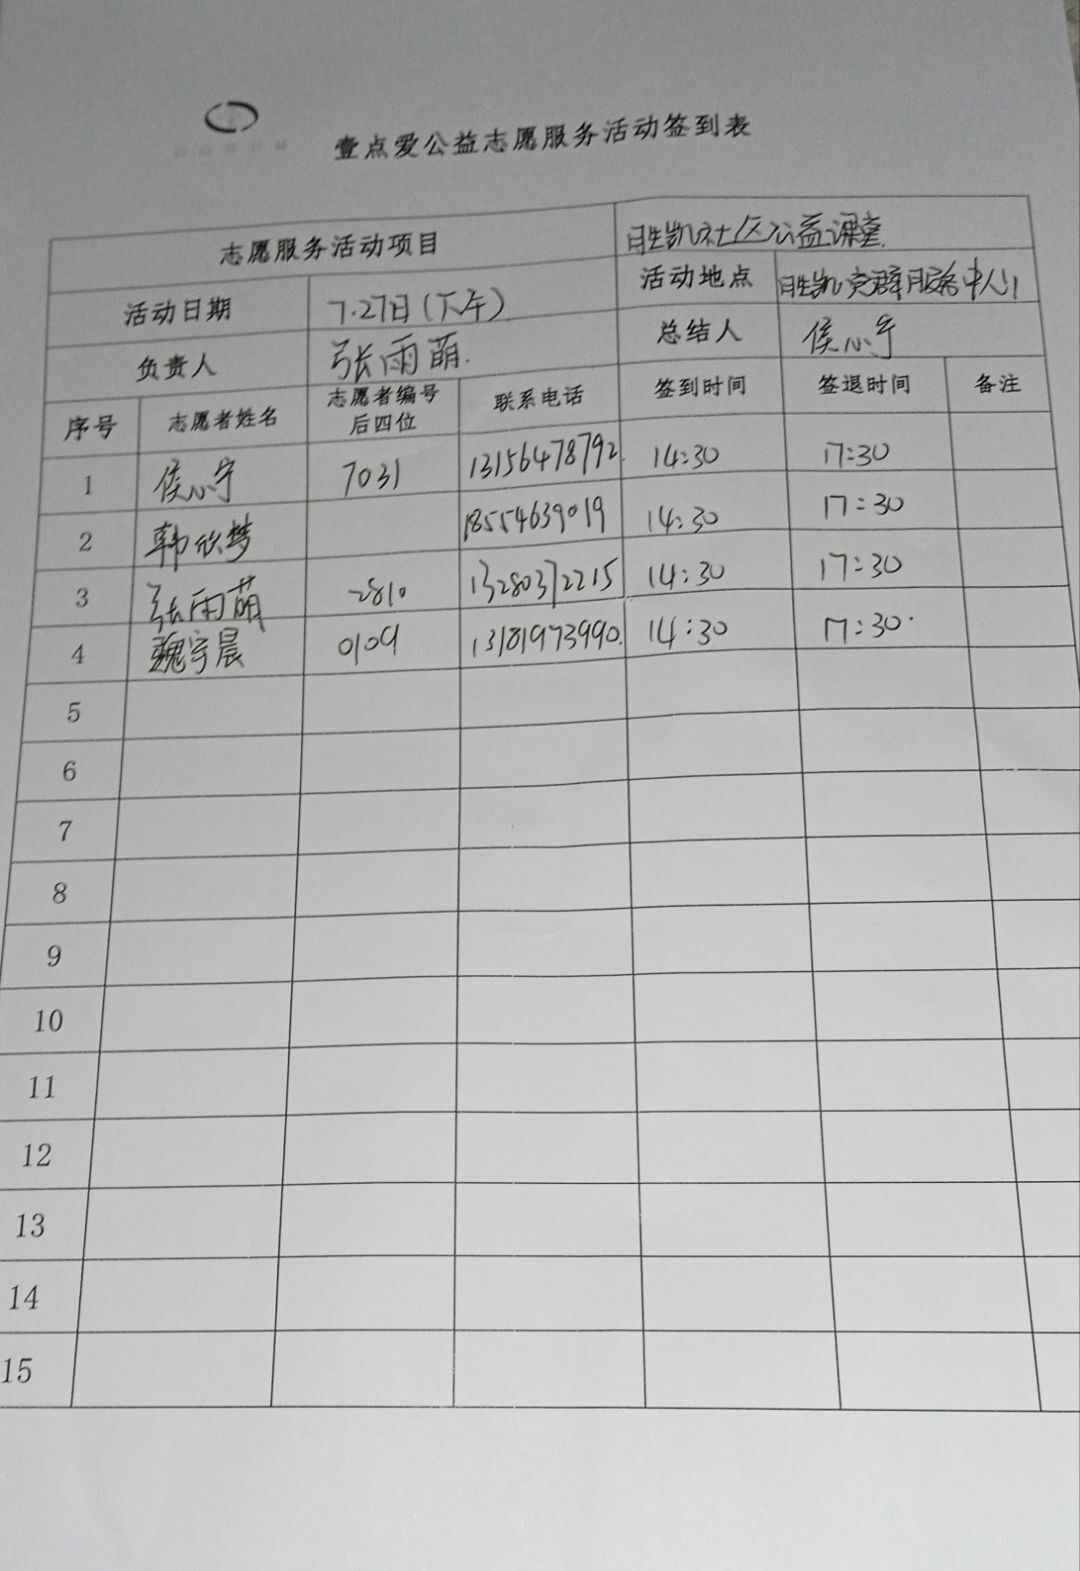 壹点爱公益志愿服务活动签到表
志愿服务活动项目 胜凯社区公益课堂
活动日期 7.27日(下午) 活动地点 胜凯党群服务中心
负责人 张雨萌. 总结人 侯心宁
序号 志愿者姓名 志愿者编号后四位 联系电话 签到时间 签退时间 备注
1 侯心宁 7031 13156478792 14:30 17:30
2 韩欣梦 18554639019 14:30 17:30
3 张雨萌 2810 13280372215 14:30 17:30
4 魏宇晨 0109 13181973990. 14:30 17:30.
5
6
7
8
9
10
11
12
13
14
15